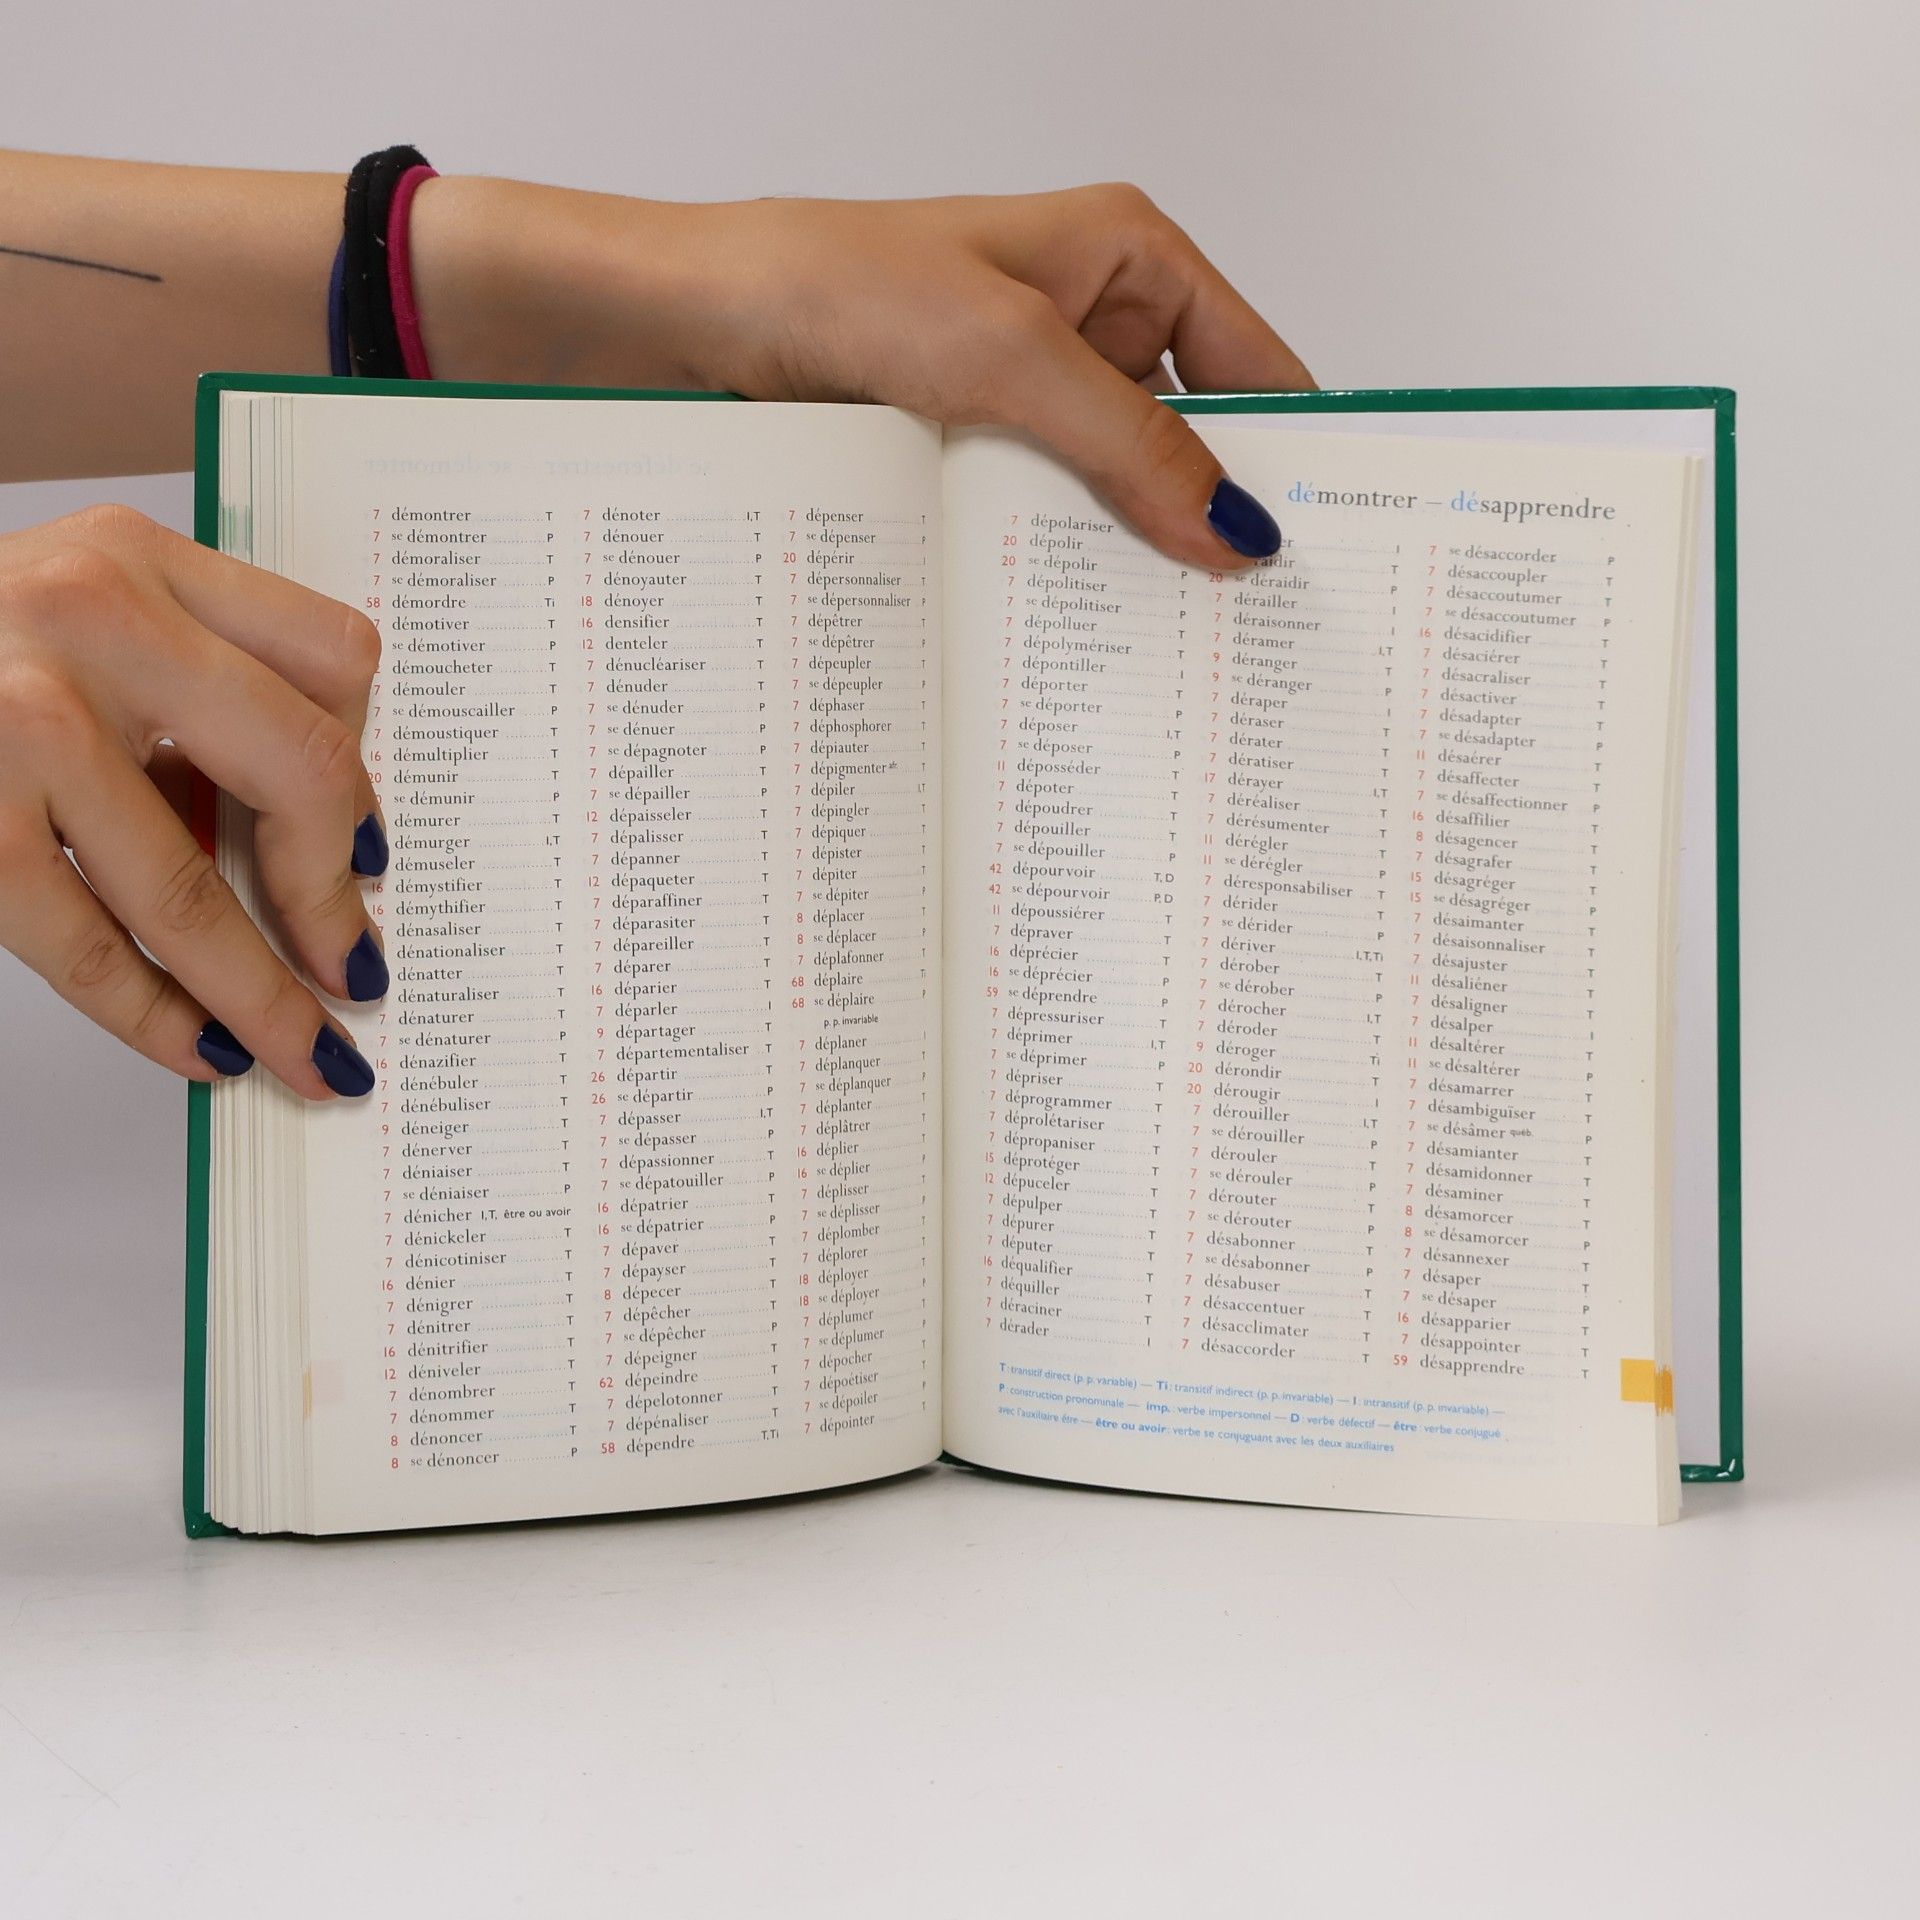 démontrer – désapprendre
7 démontrer T
7 se démontrer P
7 démoraliser T
7 se démoraliser P
58 démordre Ti
7 démotiver T
se démotiver P
démoucheter T
7 démouler T
7 se démouscailler P
7 démoustiquer T
16 démultiplier T
20 démunir T
se démunir P
démurer T
démurger I,T
démuseler T
16 démystifier T
16 démythifier T
7 dénasaliser T
dénationaliser T
dénatter T
dénaturaliser T
7 dénaturer T
7 se dénaturer P
16 dénazifier T
7 dénébuler T
7 dénébuliser T
9 déneiger T
7 dénerver T
7 déniaiser T
7 se déniaiser P
7 dénicher I,T, être ou avoir
7 dénickeler T
7 dénicotiniser T
16 dénier T
7 dénigrer T
7 dénitrer T
16 dénitrifier T
12 déniveler T
7 dénombrer T
7 dénommer T
8 dénoncer T
8 se dénoncer P
7 dénoter I,T
7 dénouer T
7 se dénouer P
7 dénoyauter T
18 dénoyer T
16 densifier T
12 denteler T
7 dénucléariser T
7 dénuder T
7 se dénuder P
7 se dénuer P
7 se dépagnoter P
7 dépailler T
7 se dépailler P
12 dépaisseler T
7 dépalisser T
7 dépanner T
12 dépaqueter T
7 déparaffiner T
7 déparasiter T
7 dépareiller T
7 déparer T
16 déparier T
7 déparler I
9 départager T
7 départementaliser T
26 départir T
26 se départir P
7 dépasser I,T
7 se dépasser P
7 dépassionner T
7 se dépatouiller P
16 dépatrier T
16 se dépatrier P
7 dépaver T
7 dépayser T
8 dépecer T
7 dépêcher T
7 se dépêcher P
7 dépeigner T
62 dépeindre T
7 dépelotonner T
7 dépénaliser T
58 dépendre T,Ti
7 dépenser T
7 se dépenser P
20 dépérir I
7 dépersonnaliser T
7 se dépersonnaliser P
7 dépêtrer T
7 se dépêtrer P
7 dépeupler T
7 se dépeupler P
7 déphaser T
7 déphosphorer T
7 dépiauter T
7 dépigmenter afr. T
7 dépiler I,T
7 dépingler T
7 dépiquer T
7 dépister T
7 dépiter T
7 se dépiter P
8 déplacer T
8 se déplacer P
7 déplafonner T
68 déplaire Ti
68 se déplaire P
p. p. invariable
7 déplaner I
7 déplanquer T
7 se déplanquer P
7 déplanter T
7 déplâtrer T
16 déplier T
16 se déplier P
7 déplisser T
7 se déplisser P
7 déplomber T
7 déplorer T
18 déployer T
18 se déployer P
7 déplumer T
7 se déplumer P
7 dépocher T
7 dépoétiser T
7 se dépoiler P
7 dépointer T
7 dépolariser
20 dépolir
20 se dépolir P
7 dépolitiser T
7 se dépolitiser P
7 dépolluer T
7 dépolymériser T
7 dépontiller I
7 déporter T
7 se déporter P
7 déposer I,T
7 se déposer P
11 déposséder T
7 dépoter T
7 dépoudrer T
7 dépouiller T
7 se dépouiller P
42 dépourvoir T,D
42 se dépourvoir P,D
11 dépoussiérer T
7 dépraver T
16 déprécier T
16 se déprécier P
59 se déprendre P
7 dépressuriser T
7 déprimer I,T
7 se déprimer P
7 dépriser T
7 déprogrammer T
7 déprolétariser T
7 dépropaniser T
15 déprotéger T
12 dépuceler T
7 dépulper T
7 dépurer T
7 députer T
16 déqualifier T
7 déquiller T
7 déraciner T
7 dérader I
er I
raidir T
20 se déraidir P
7 dérailler I
7 déraisonner I
7 déramer I,T
9 déranger T
9 se déranger P
7 déraper I
7 déraser T
7 dérater T
7 dératiser T
17 dérayer I,T
7 déréaliser T
7 dérésumenter T
11 dérégler T
11 se dérégler P
7 déresponsabiliser T
7 dérider T
7 se dérider P
7 dériver I,T,Ti
7 dérober T
7 se dérober P
7 dérocher I,T
7 déroder T
9 déroger Ti
20 dérondir T
20 dérougir I
7 dérouiller I,T
7 se dérouiller P
7 dérouler T
7 se dérouler P
7 dérouter T
7 se dérouter P
7 désabonner T
7 se désabonner P
7 désabuser T
7 désaccentuer T
7 désacclimater T
7 désaccorder T
7 se désaccorder P
7 désaccoupler T
7 désaccoutumer T
7 se désaccoutumer P
16 désacidifier T
7 désaciérer T
7 désacraliser T
7 désactiver T
7 désadapter T
7 se désadapter P
11 désaérer T
7 désaffecter T
7 se désaffectionner P
16 désaffilier T
8 désagencer T
7 désagrafer T
15 désagréger T
15 se désagréger P
7 désaimanter T
7 désaisonnaliser T
7 désajuster T
11 désaliéner T
7 désaligner T
7 désalper I
11 désaltérer T
11 se désaltérer P
7 désamarrer T
7 désambiguïser T
7 se désâmer québ. P
7 désamianter T
7 désamidonner T
7 désaminer T
8 désamorcer T
8 se désamorcer P
7 désannexer T
7 désaper T
7 se désaper P
16 désapparier T
7 désappointer T
59 désapprendre T
T : transitif direct (p. p. variable) — Ti : transitif indirect (p. p. invariable) — I : intransitif (p. p. invariable) —
P : construction pronominale — imp. : verbe impersonnel — D : verbe défectif — être : verbe conjugué
avec l'auxiliaire être — être ou avoir : verbe se conjuguant avec les deux auxiliaires